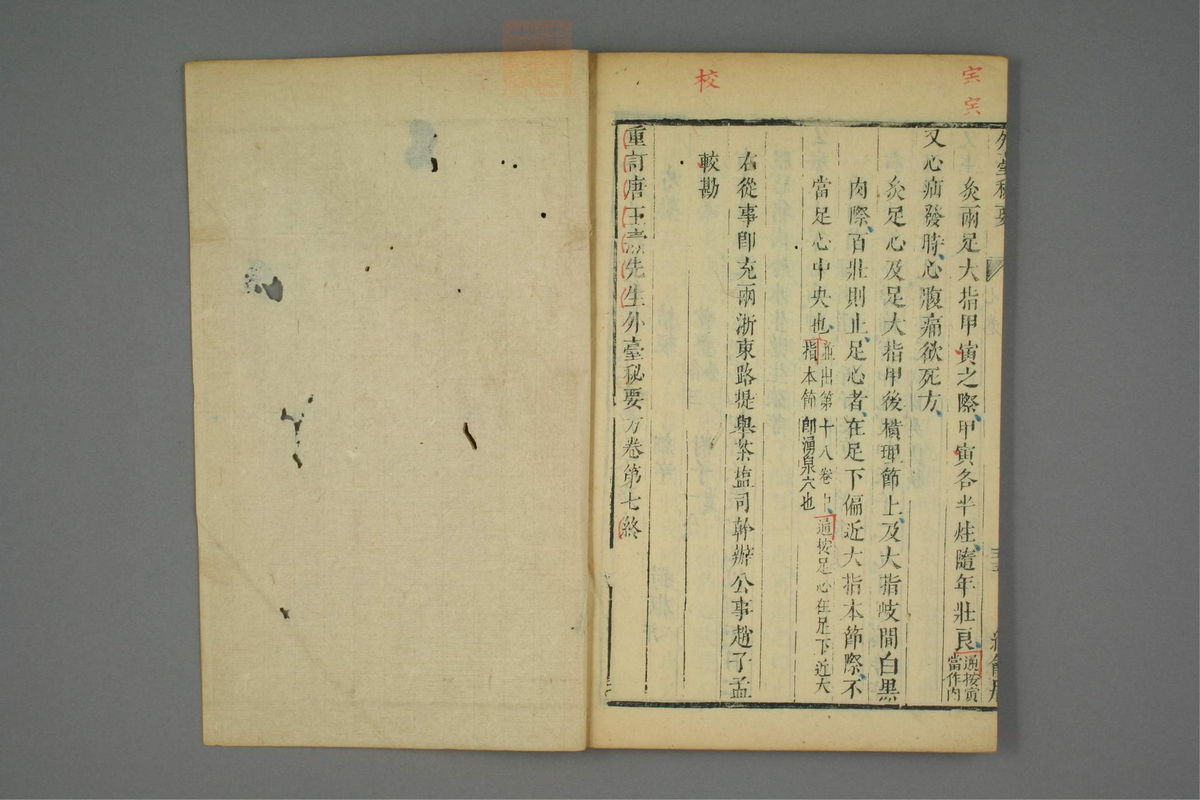 宍
宍
校
外臺秘要
灸兩足大指甲寅之際、甲寅各半炷、隨年壯良、通按寅當作肉
又心痛發時、心腹痛欲死方、
灸足心及足大指甲後橫理節上、及大指岐間白黑
肉際、百壯則止、足心者、在足下偏近大指本節際、不
當足心中央也、並出第十八卷中、通按足心在足下近大指本節即湧泉穴也
右從事郎充兩浙東路提舉茶塩司幹辦公事趙子孟
較勘
重訂唐王燾先生外臺秘要方卷第七終